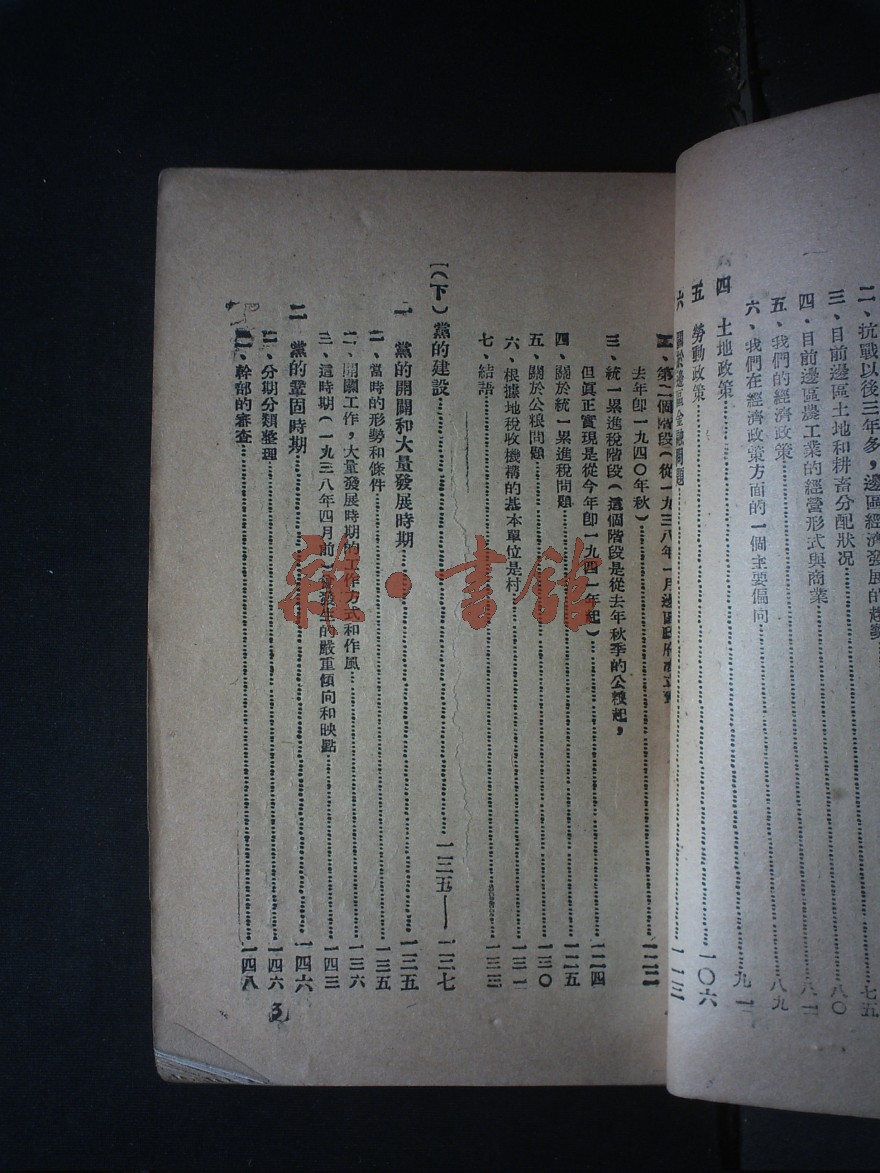 二、抗戰以後三年多，邊區經濟發展的趨勢
三、目前邊區土地和耕畜分配狀况……七五
四、目前邊區農工業的經營形式與商業……八〇
五、我們的經濟政策……八一
六、我們在經濟政策方面的一個主要偏向……八九
四 土地政策……九一
五 勞動政策……一〇六
六 關於邊區金融問題……一一三
二、第二個階段（從一九三八年一月邊區政府成立到
去年卽一九四〇年秋）……一二二
三、統一累進稅階段（這個階段是從去年秋季的公糧起，
但眞正實現是從今年卽一九四一年起）……一二四
四、關於統一累進稅問題……一二五
五、關於公粮問題……一三〇
六、根據地稅收機構的基本單位是村……一三一
七、結語……一三三
（下）黨的建設……一三五——一三七
一 黨的開闢和大量發展時期……一三五
一、當時的形勢和條件……一三五
二、開闢工作，大量發展時期的工作方式和作風……一三六
三、這時期（一九三八年四月前）發生的嚴重傾向和缺點……一四三
二 黨的鞏固時期……一四六
一、分期分類整理……一四六
二、幹部的審查……一四八
3
雜·書館